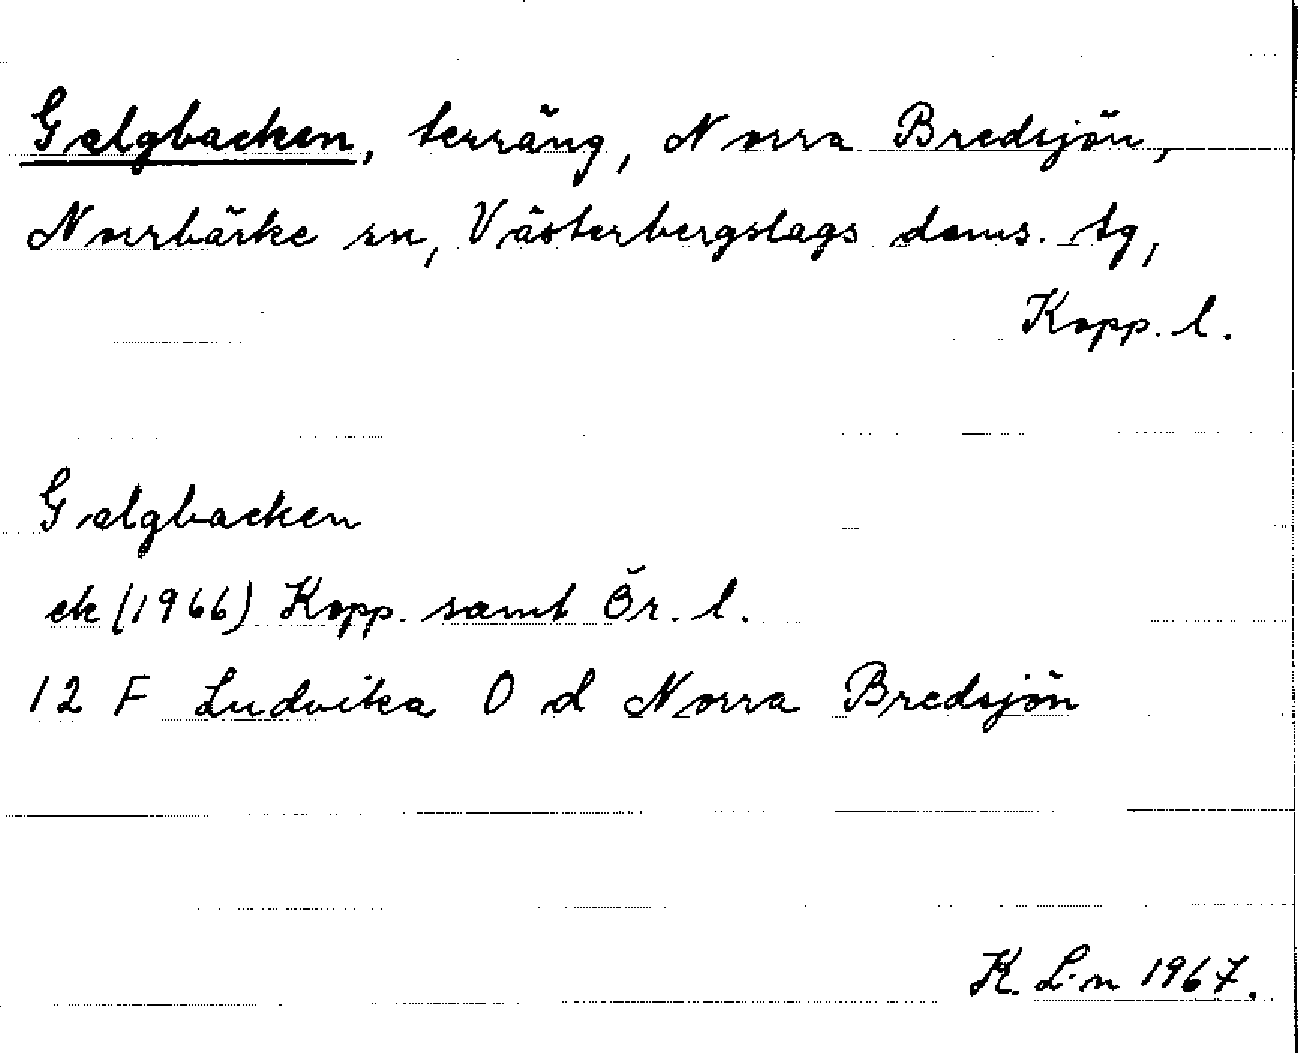 Galgbacken, terräng, Norra Bredsjön,
Norrbärke sn, Västerbergslags doms. tg,
Kopp. l.
Galgbacken
ek (1966) Kopp. samt Ör. l.
12 F Ludvika O d Norra Bredsjön
K. L-n 1967.